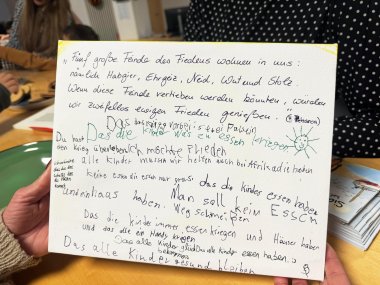 "Fünf große Feinde des Friedens wohnen in uns:
nämlich Habgier, Ehrgeiz, Neid, Wut und Stolz.
Wenn diese Feinde vertrieben werden könnten, würden
wir zweifellos ewigen Frieden genießen."
Das vorbei ist bei
Das die kinder was zu essen kriegen
Du hast
den krieg überlebt Ich möchte Frieden
alle kinder mir helfen auch bei Afrika die haben
keine essen die essen nur das die kinder essen haben
und ein haus haben. Man soll kein Essen
Weg schmeißen
Das die kinder immer essen kriegen und Häuser haben
und das die ein Handy kriegen
Das alle kinder Das alle kinder essen haben.
bekommen
Das alle kinder gesund bleiben